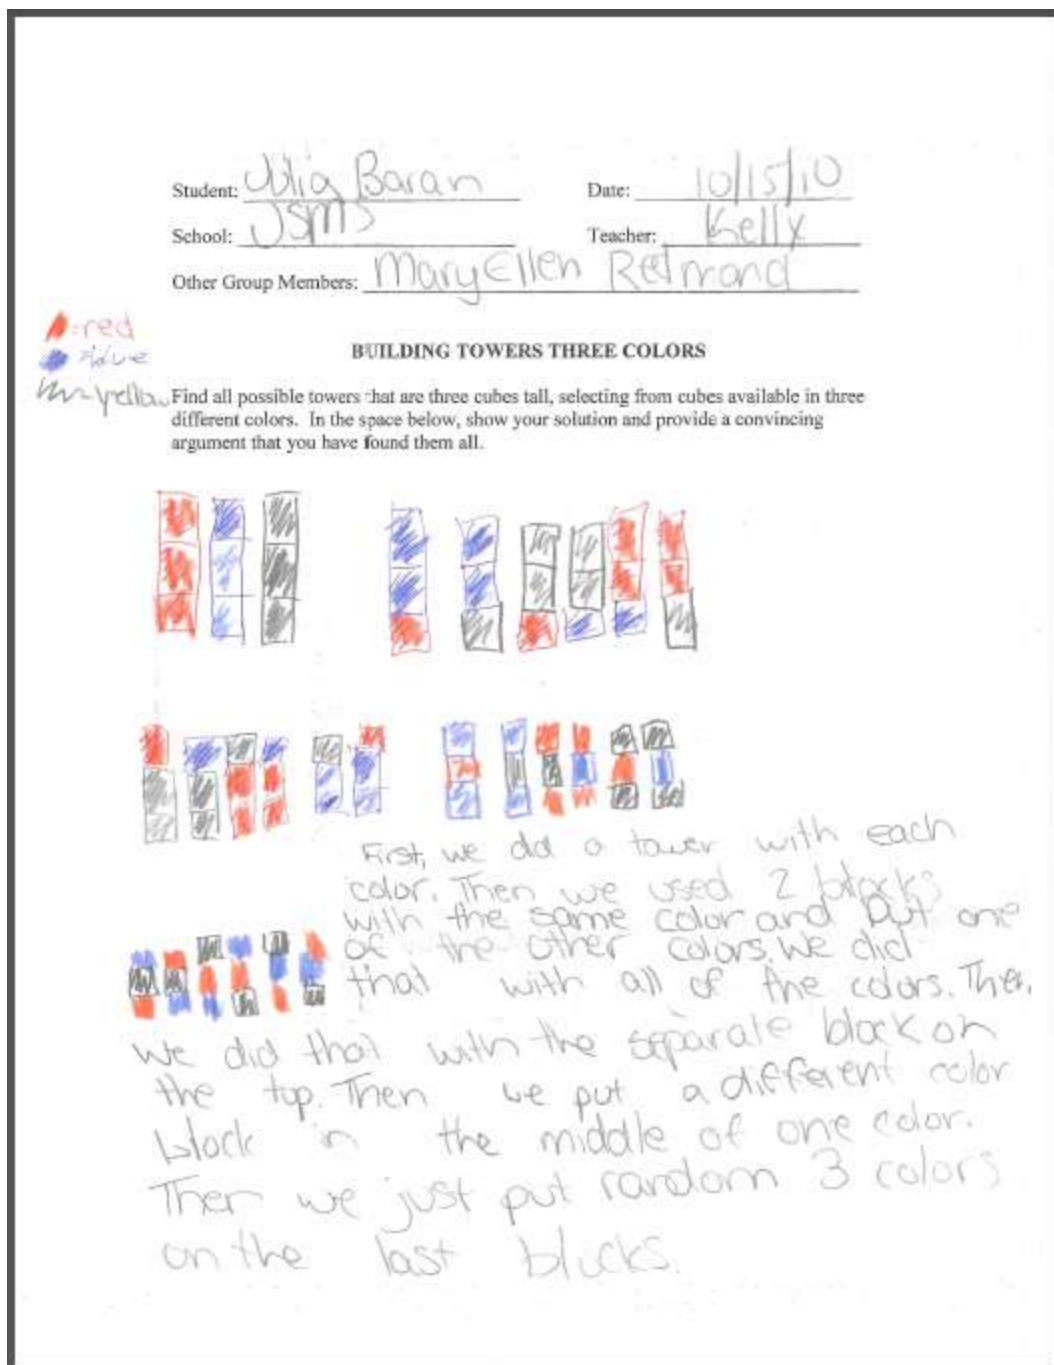 Student: Julia Baran Date: 10/15/10
School: JSMS Teacher: Kelly
Other Group Members: MaryEllen Redmond
=red
=blue
=yellow
BUILDING TOWERS THREE COLORS
Find all possible towers that are three cubes tall, selecting from cubes available in three
different colors. In the space below, show your solution and provide a convincing
argument that you have found them all.
First, we did a tower with each
color. Then we used 2 blocks
with the same color and put one
of the other colors. We did
that with all of the colors. Then,
we did that with the separate block on
the top. Then we put a different color
block in the middle of one color.
Then we just put random 3 colors
on the last blocks.